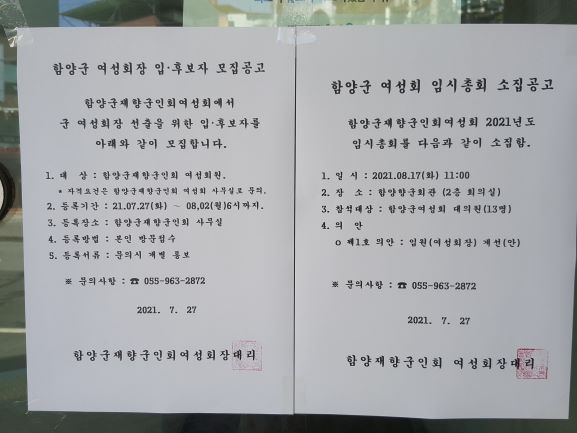 함양군 여성회장 입·후보자 모집공고
함양군재향군인회여성회에서
군 여성회장 선출을 위한 입·후보자를
아래와 같이 모집합니다.
1. 대 상 : 함양군재향군인회 여성회원.
* 자격요건은 함양군재향군인회 여성회 사무실로 문의.
2. 등록기간 : 21.07.27(화) ~ 08,02(월)6시까지.
3. 등록장소 : 함양군재향군인회 사무실
4. 등록방법 : 본인 방문접수
5. 등록서류 : 문의시 개별 통보
※ 문의사항 : ☎ 055-963-2872
2021. 7. 27
함양군재향군인회여성회장대리
함양군 여성회 임시총회 소집공고
함양군재향군인회여성회 2021년도
임시총회를 다음과 같이 소집함.
1. 일 시 : 2021.08.17(화) 11:00
2. 장 소 : 함양향군회관 (2층 회의실)
3. 참석대상 : 함양군여성회 대의원(13명)
4. 의 안
o 제1호 의안 : 임원(여성회장) 개선(안)
※ 문의사항 : ☎ 055-963-2872
2021. 7. 27
함양군재향군인회 여성회장대리